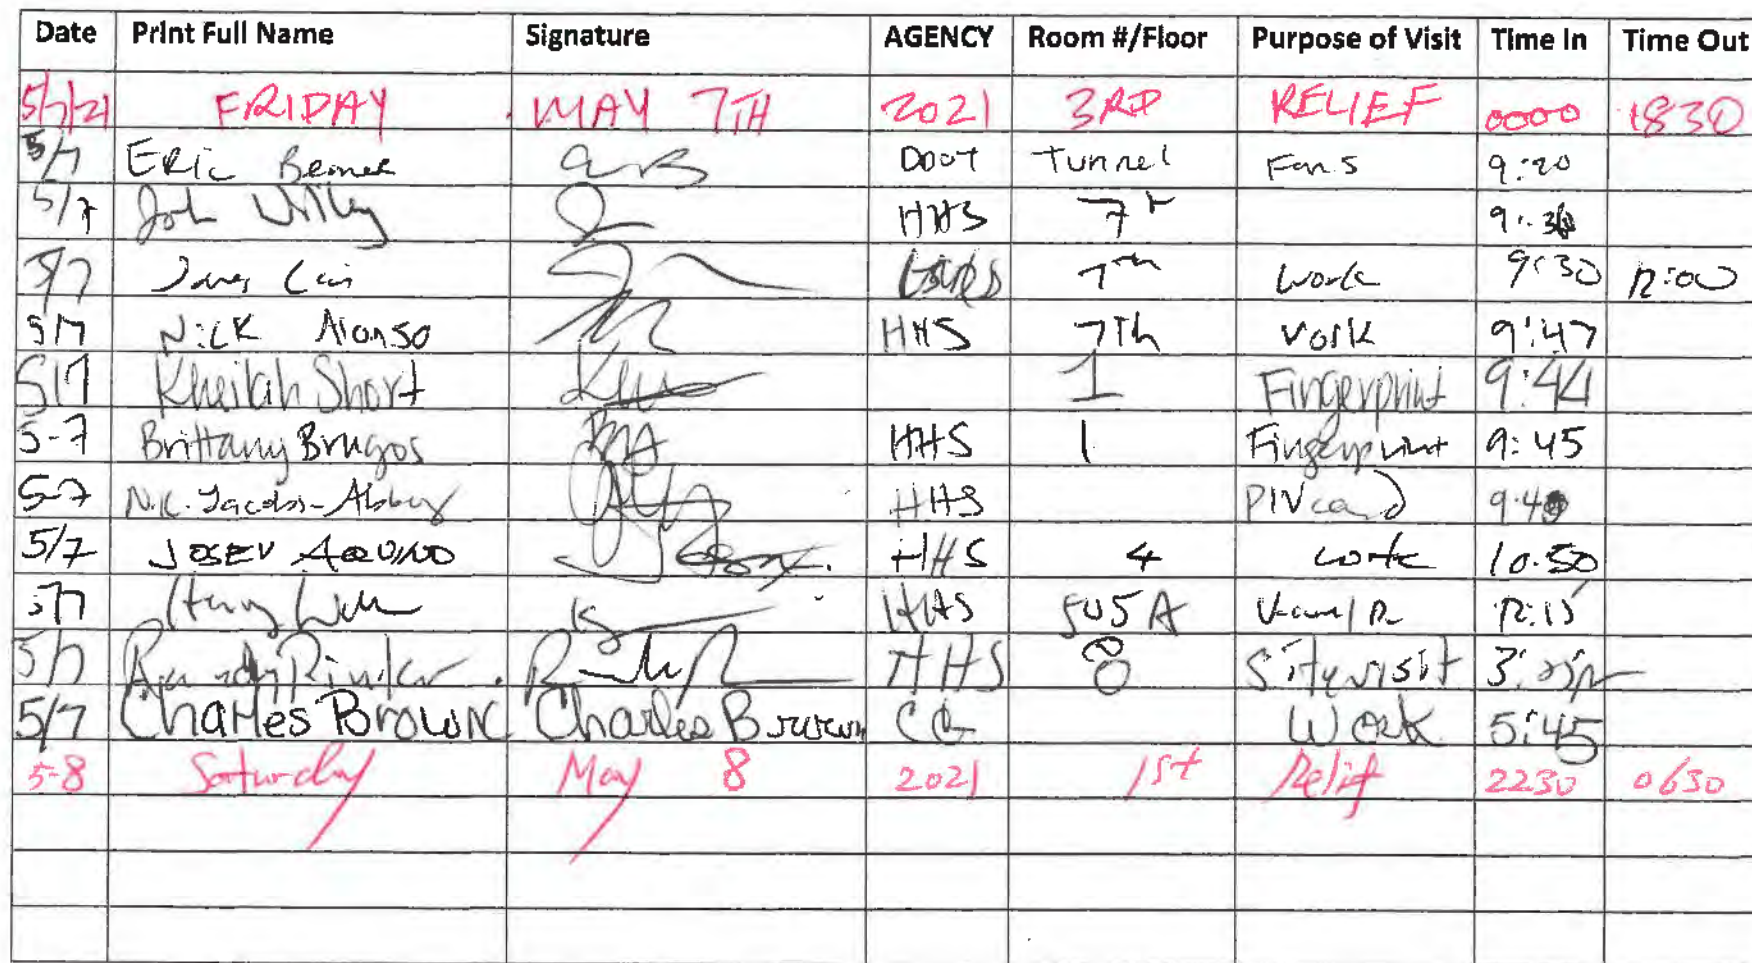 Date Print Full Name Signature AGENCY Room #/Floor Purpose of Visit Time In Time Out
5/7/21 FRIDAY MAY 7TH 2021 3RD RELIEF 0000 1830
5/7 ERic DOOT Tunnel Fans 9:20
5/7 John HHS 7th
5/7 7th work 9:30 12:00
5/7 Nick Alonso HHS 7Th work 9:47
5/7 Kheilah Short 1 Fingerprint 9:44
5-7 Brittany Brugos HHS 1 Fingerprint 9:45
5-7 N.K. Jacobs-Abbey HHS PIV card
5/7 JOSEV AQUINO HHS 4 work 10:50
5/7 HHS 505A 12:15
5/7 Randy Rinker HHS 8 Site visit
5/7 Charles Brown Charles Brown CG Work 5:45
5-8 Saturday May 8 2021 1st Relief 2230 0630